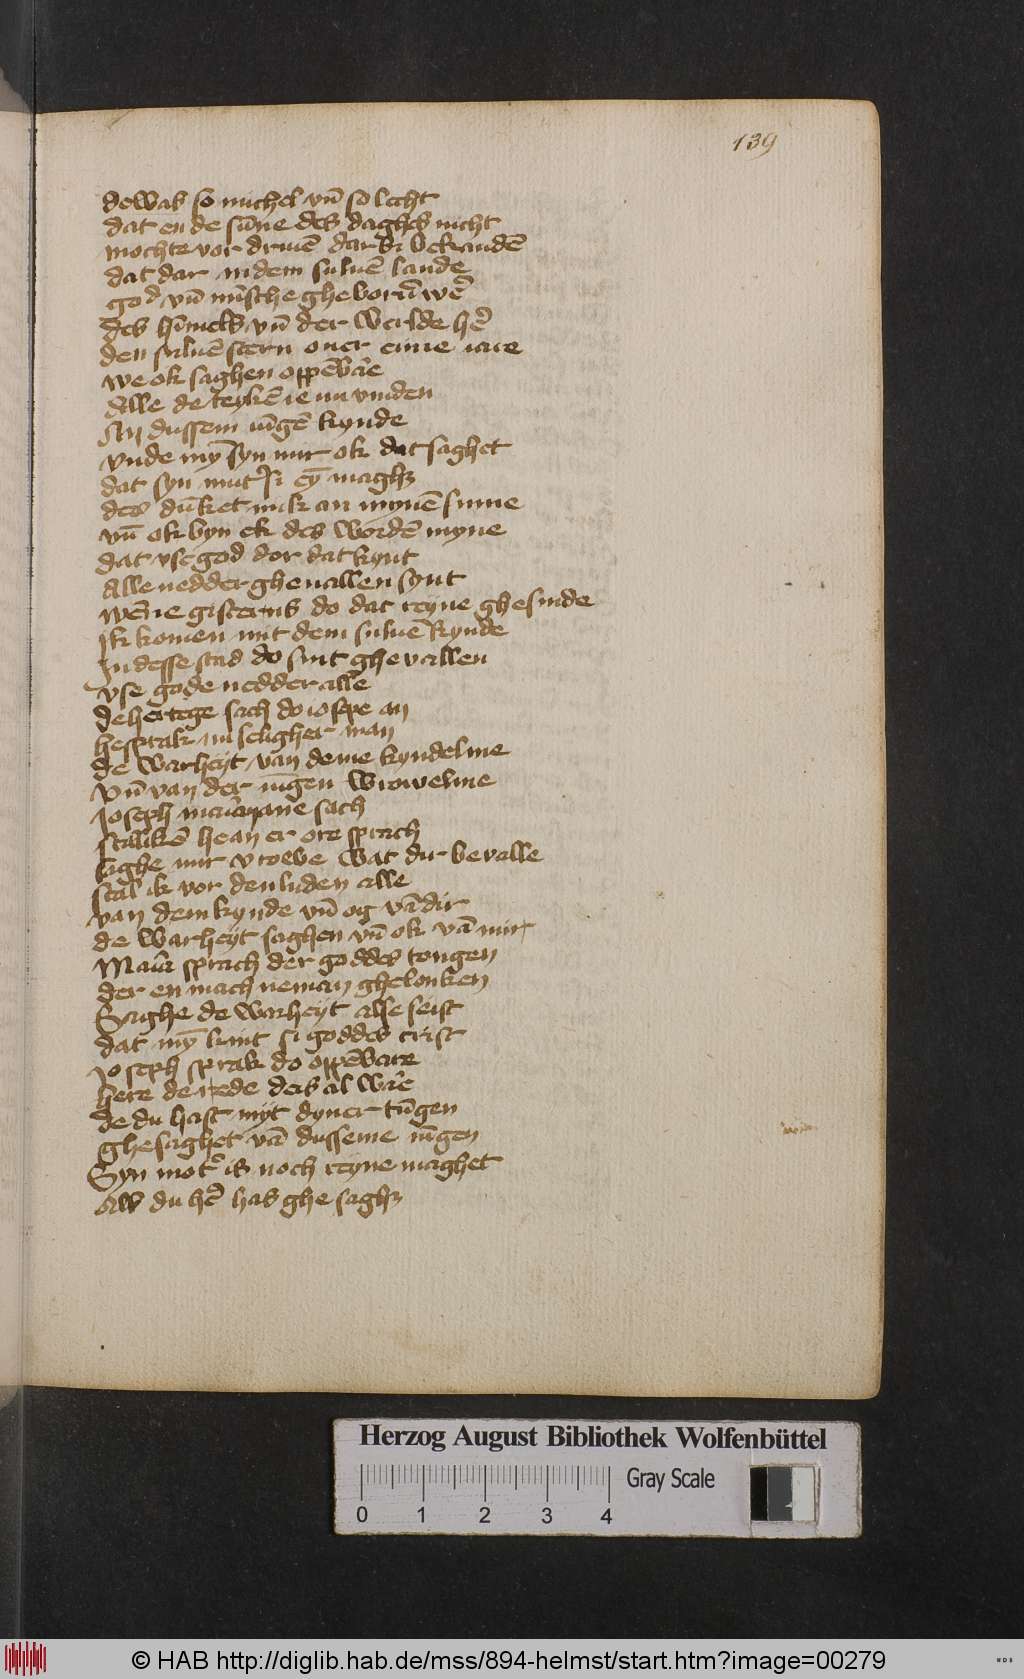 139
dewas so michel vn̄ so lecht
dat en de sūne des daghes nicht
mochte vor driuē dar bi bekandē
dat dar in dem suluē lande
god vn̄ mīsche ghe borē wer̄
des hīmels vn̄ der werlde her̄
den suluē stern ouer eime iare
we ok saghen oppēbare
Alle de teykē ie nu vinden
An dussem iūgē kynde
vnde my syn mir ok dat saghet
dat syn mut̄ si ey maghꝫ
des dūket mik an mynē sinne
vn̄ ok byn ek des wordē inyne
dat vse god dor dat kynt
Alle nedder ghe uallen synt
wēne gisterns do dat reyne ghesinde
Ik komen mit dem suluē kynde
In desse stad do sint ghe vallen
vse gode nedder alle
de hertege sach do iosepe an
he sprak nu seligher man
de warheyt van deme kyndelme
Vn̄ van der iūgen vrowelme
Joseph mariē ane sach
stillikē he an er ore sprach
saghe mir vrowe wat dir beualle
scal ik vor den luden alle
van dem kynde vn̄ og vā dir
de warheyt saghen vn̄ ok vā mir
Maria sprach der goddes tongen
der en mach neman ghelonken
Saghe de warheyt alse seist
dat my kint si goddes crist
Joseph sprak do oppēbare
here de rede deis al wāre
de du hast myt dyner tūgen
ghesaghet vā dusseme iūgen
Syn mot̄ is noch reyne maghet
Als du her̄ has ghe saghꝫ
Herzog August Bibliothek Wolfenbüttel
Gray Scale
0 1 2 3 4
© HAB http://diglib.hab.de/mss/894-helmst/start.htm?image=00279